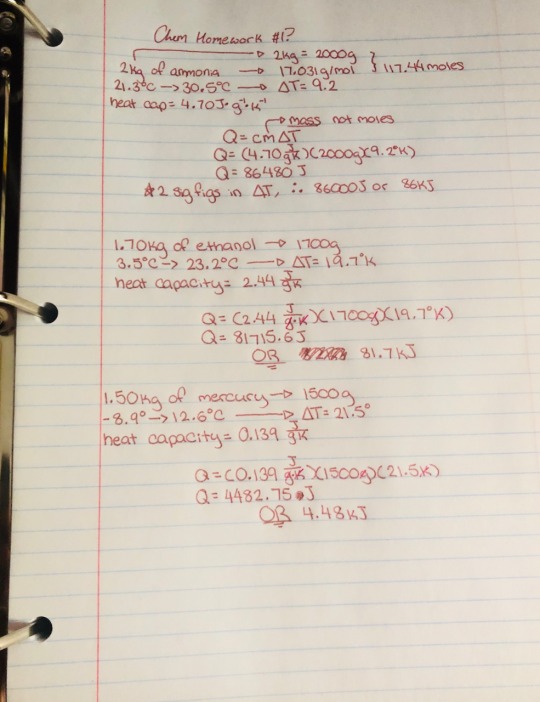 Chem Homework #1?
→ 2kg = 2000g
2kg of ammonia → 17.031g/mol } 117.44moles
21.3°C → 30.5°C → ΔT = 9.2
heat cap = 4.70J·g⁻¹·K⁻¹
→ mass not moles
Q = cmΔT
Q = (4.70 J/g·K)(2000g)(9.2°K)
Q = 86480 J
*2 sig figs in ΔT, ∴ 86000J or 86KJ
1.70Kg of ethanol → 1700g
3.5°C → 23.2°C → ΔT = 19.7°K
heat capacity = 2.44 J/g·K
Q = (2.44 J/g·K)(1700g)(19.7°K)
Q = 81715.6J
OR 81.7KJ
1.50Kg of mercury → 1500g
-8.9° → 12.6°C → ΔT = 21.5°
heat capacity = 0.139 J/g·K
Q = (0.139 J/g·K)(1500g)(21.5K)
Q = 4482.75 J
OR 4.48KJ